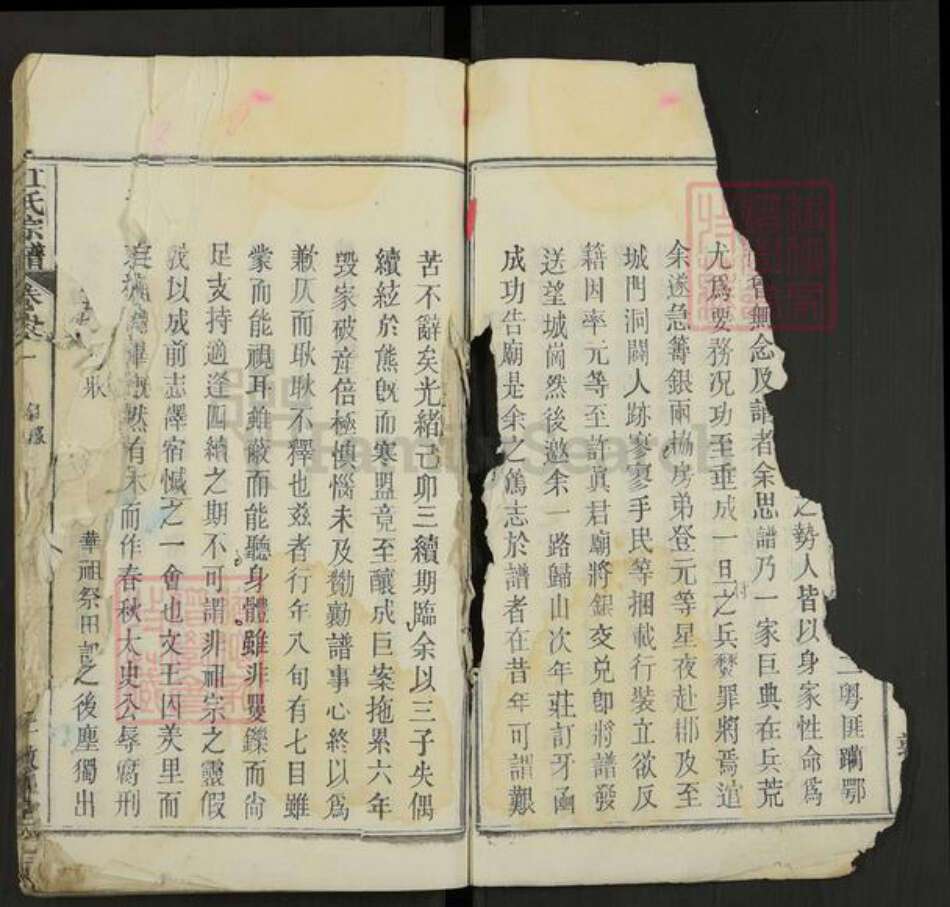 二粵匪躪鄂
之勢人皆以身家性命為
無念及譜者余思譜乃一家巨典在兵荒
尤為要務況功至垂成一旦之兵燹罪將焉逭
余遂急籌銀兩協房弟登元等星夜赴郡及至
城門洞闢人跡寥寥手民等捆載行裝立欲反
籍因率元等至許真君廟將銀交兌卽將譜發
送望城崗然後邀余一路歸山次年莊訂牙函
成功告廟是余之篤志於譜者在昔年可謂艱
苦不辭矣光緒己卯三續期臨余以三子失偶
續絃於熊旣而寒盟竟至釀成巨案拖累六年
毀家破産倍極懊惱未及勷勸譜事心終以為
歉仄而耿耿不釋也玆者行年八旬有七目雖
蒙而能視耳雖蔽而能聽身體雖非矍鑠而尚
足支持適逢四續之期不可謂非祖宗之靈假
我以成前志釋宿憾之一會也文王囚羑里而
然有未而作春秋太史公辱腐刑
之後塵獨出
江氏宗譜
卷
華祖祭田記